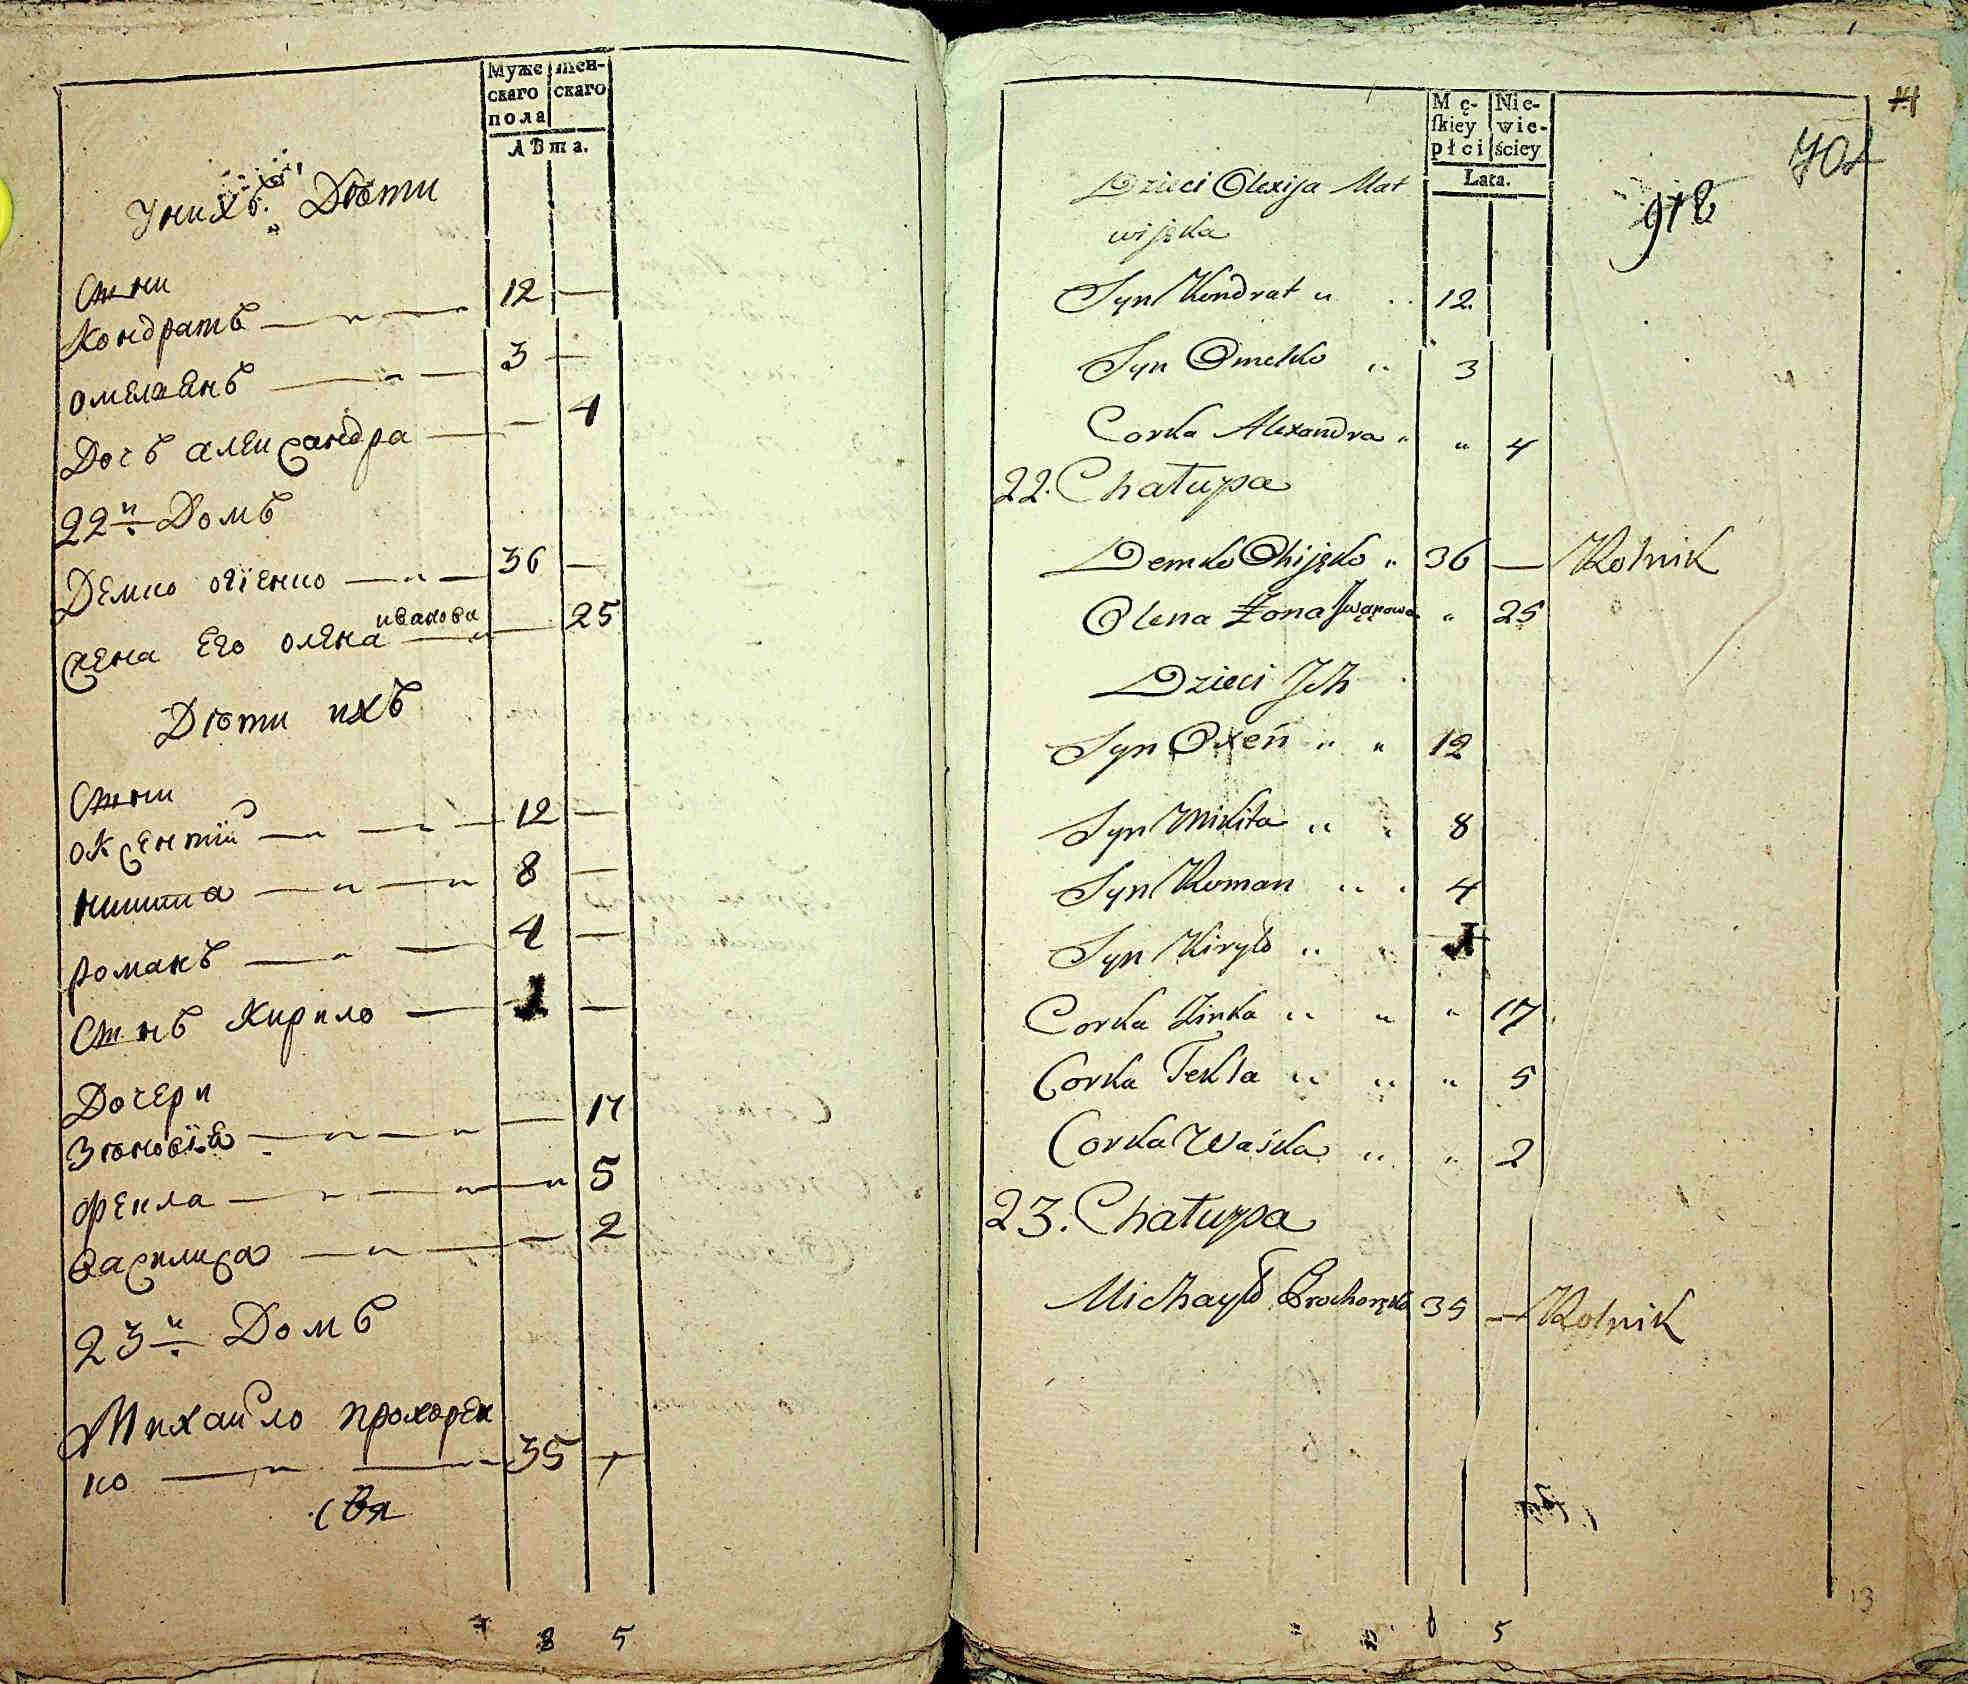 Муже
скаго
пола
Жен-
скаго
Лѣта.
У нихъ Дѣти
Сыни
Кондратъ 12 —
Омелянъ 3 —
Дочъ Александра — 4
22й Домъ
Демко Огїенко 36 —
иванова
Жена его олена — 25
Дѣти ихъ
Сыни
Оксентїй 12 —
Никита 8 —
Романъ 4 —
Сынъ Кирило 1 —
Дочери
Зѣновїя — 17
Фекла — 5
Василиса — 2
23й Домъ
Михайло прохорен
ко 35 —
8 5
Mę-
ſkiey
płci
Nie-
wie-
ściey
Lata.
14
701
912
Dzieci Olexija Mat
wijęka
Syn Kondrat 12
Syn Omelko 3
Corka Alexandra " 4
22. Chałupa
Demko Ohijęko 36 — Rolnik
Olena Żona Jwanowa " 25
Dzieci Jch
Syn Oxeń 12
Syn Mikita 8
Syn Roman 4
Syn Kiryło 1
Corka Zinka " 17
Corka Tekla " 5
Corka Waśka " 2
23. Chałupa
Michayło Prochoręko 35 — Rolnik
5
13